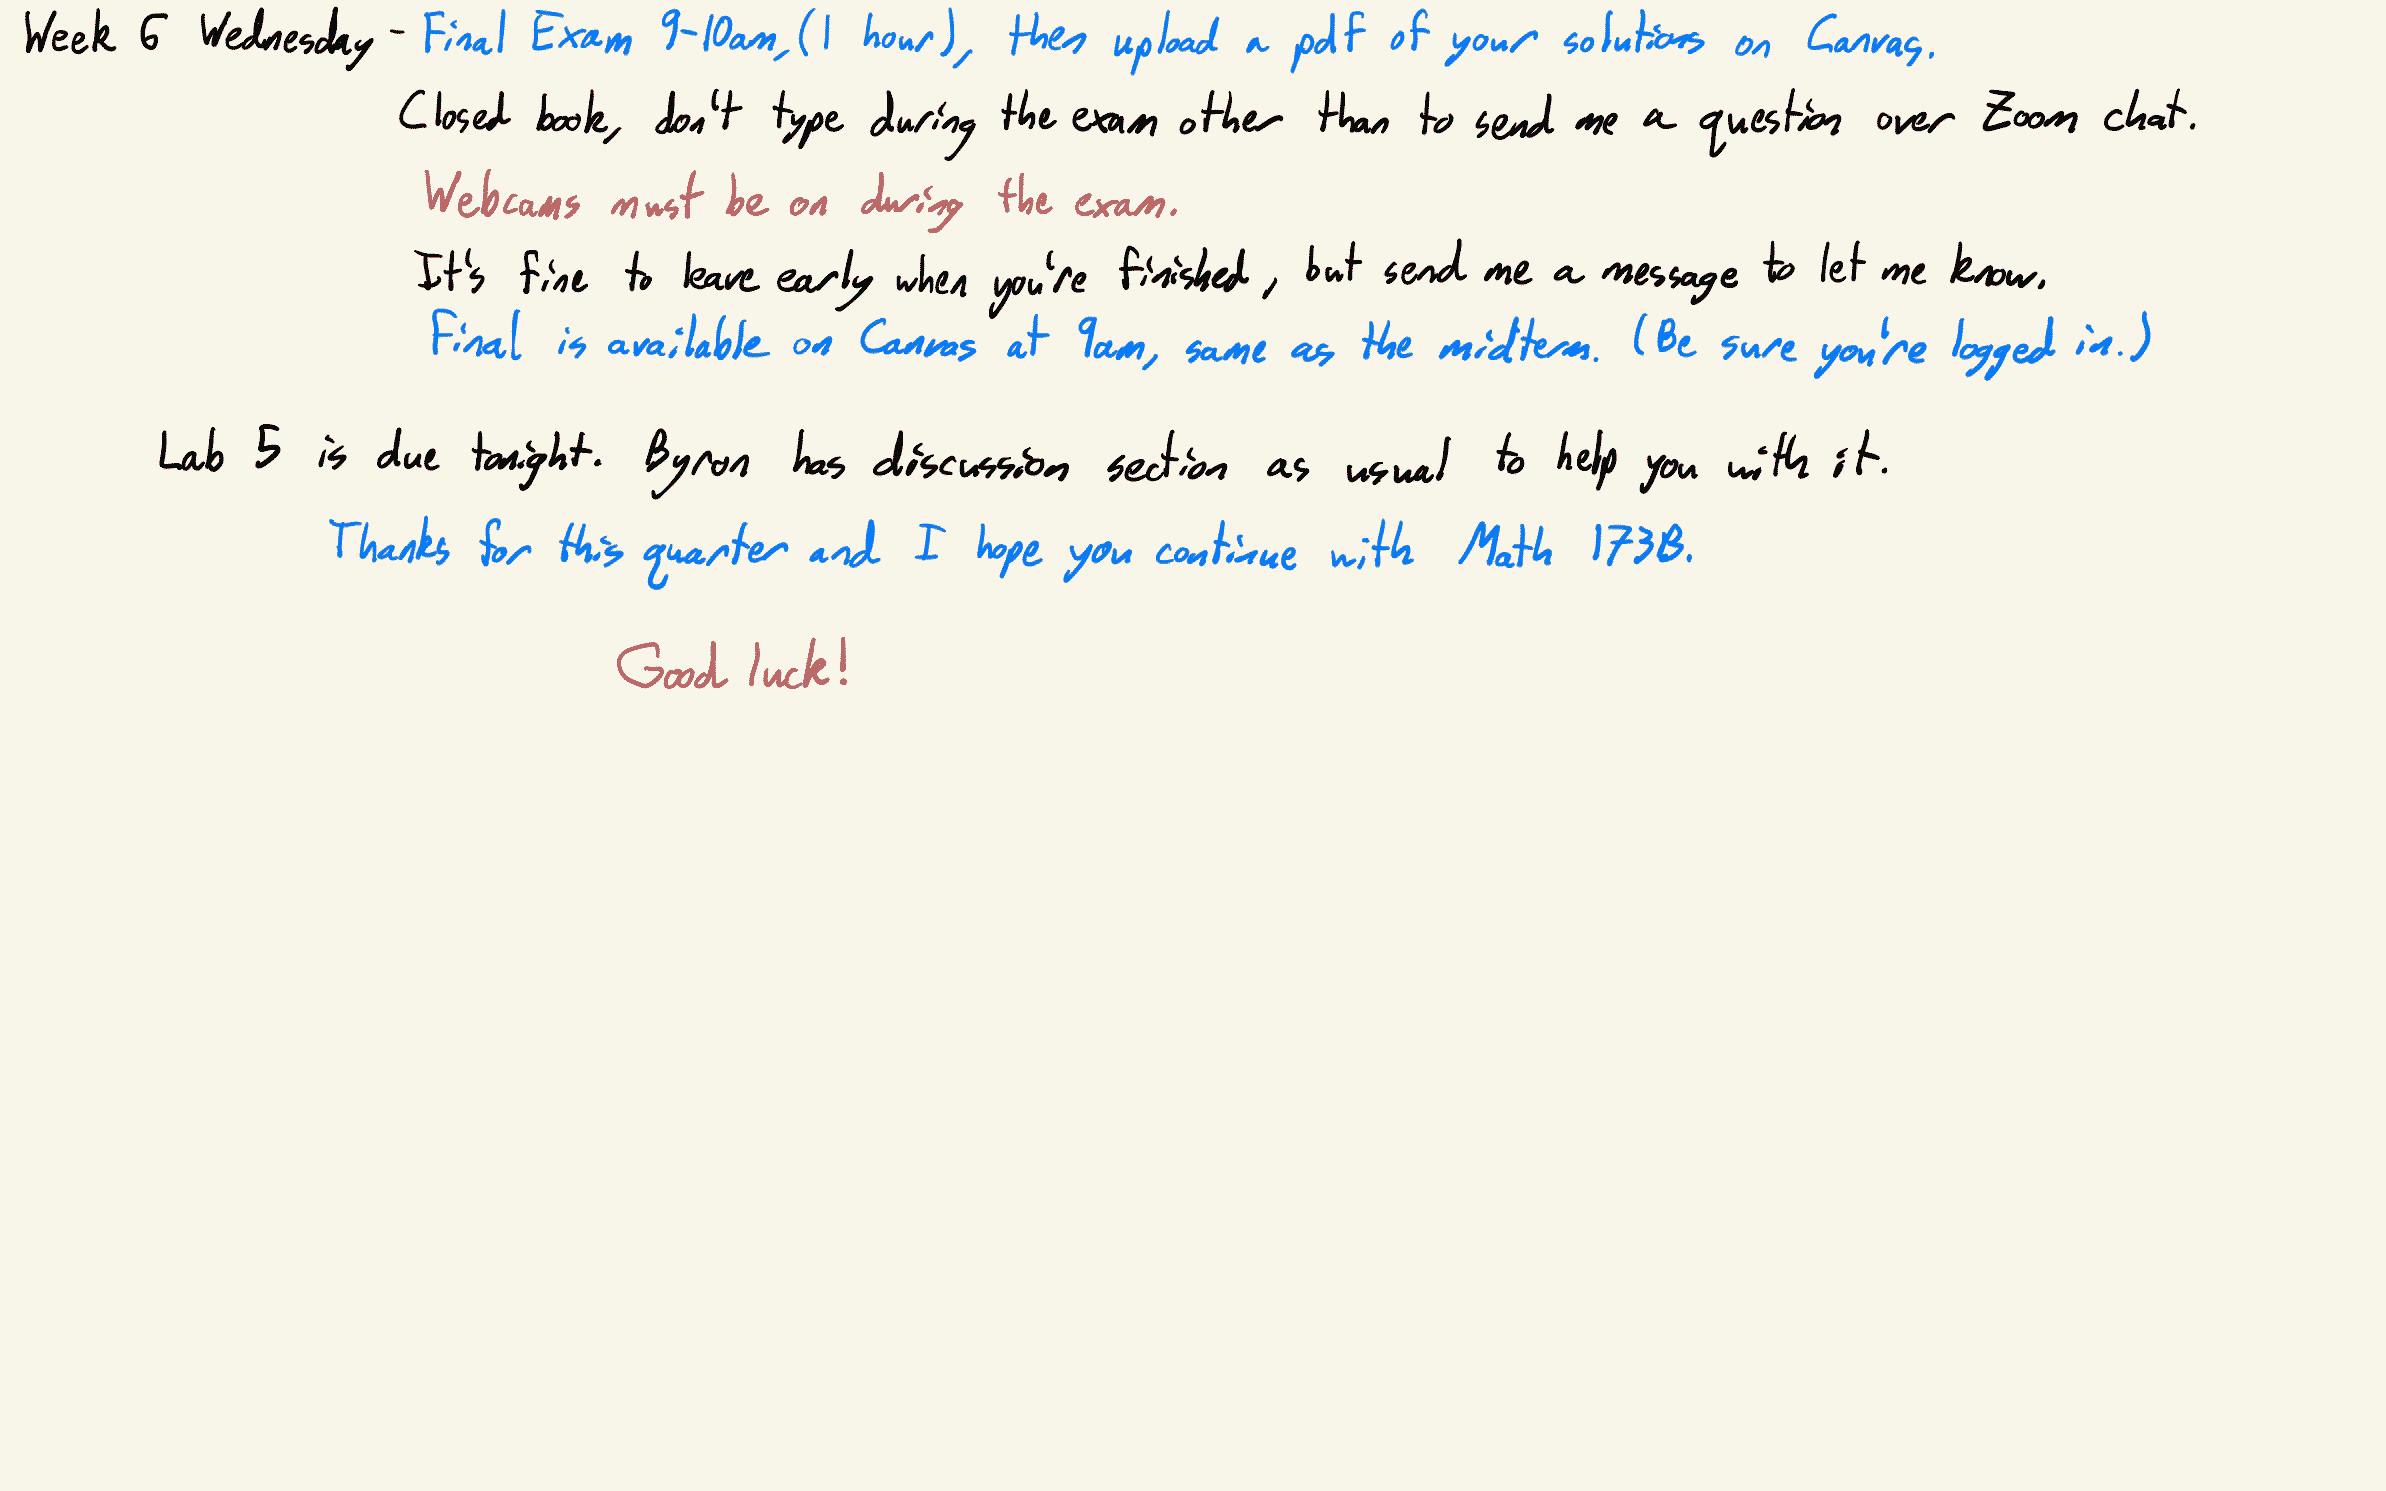 Week 6 Wednesday - Final Exam 9-10am, (1 hour), then upload a pdf of your solutions on Canvas.
Closed book, don't type during the exam other than to send me a question over Zoom chat.
Webcams must be on during the exam.
It's fine to leave early when you're finished, but send me a message to let me know.
Final is available on Canvas at 9am, same as the midterm. (Be sure you're logged in.)
Lab 5 is due tonight. Byron has discussion section as usual to help you with it.
Thanks for this quarter and I hope you continue with Math 173B.
Good luck!